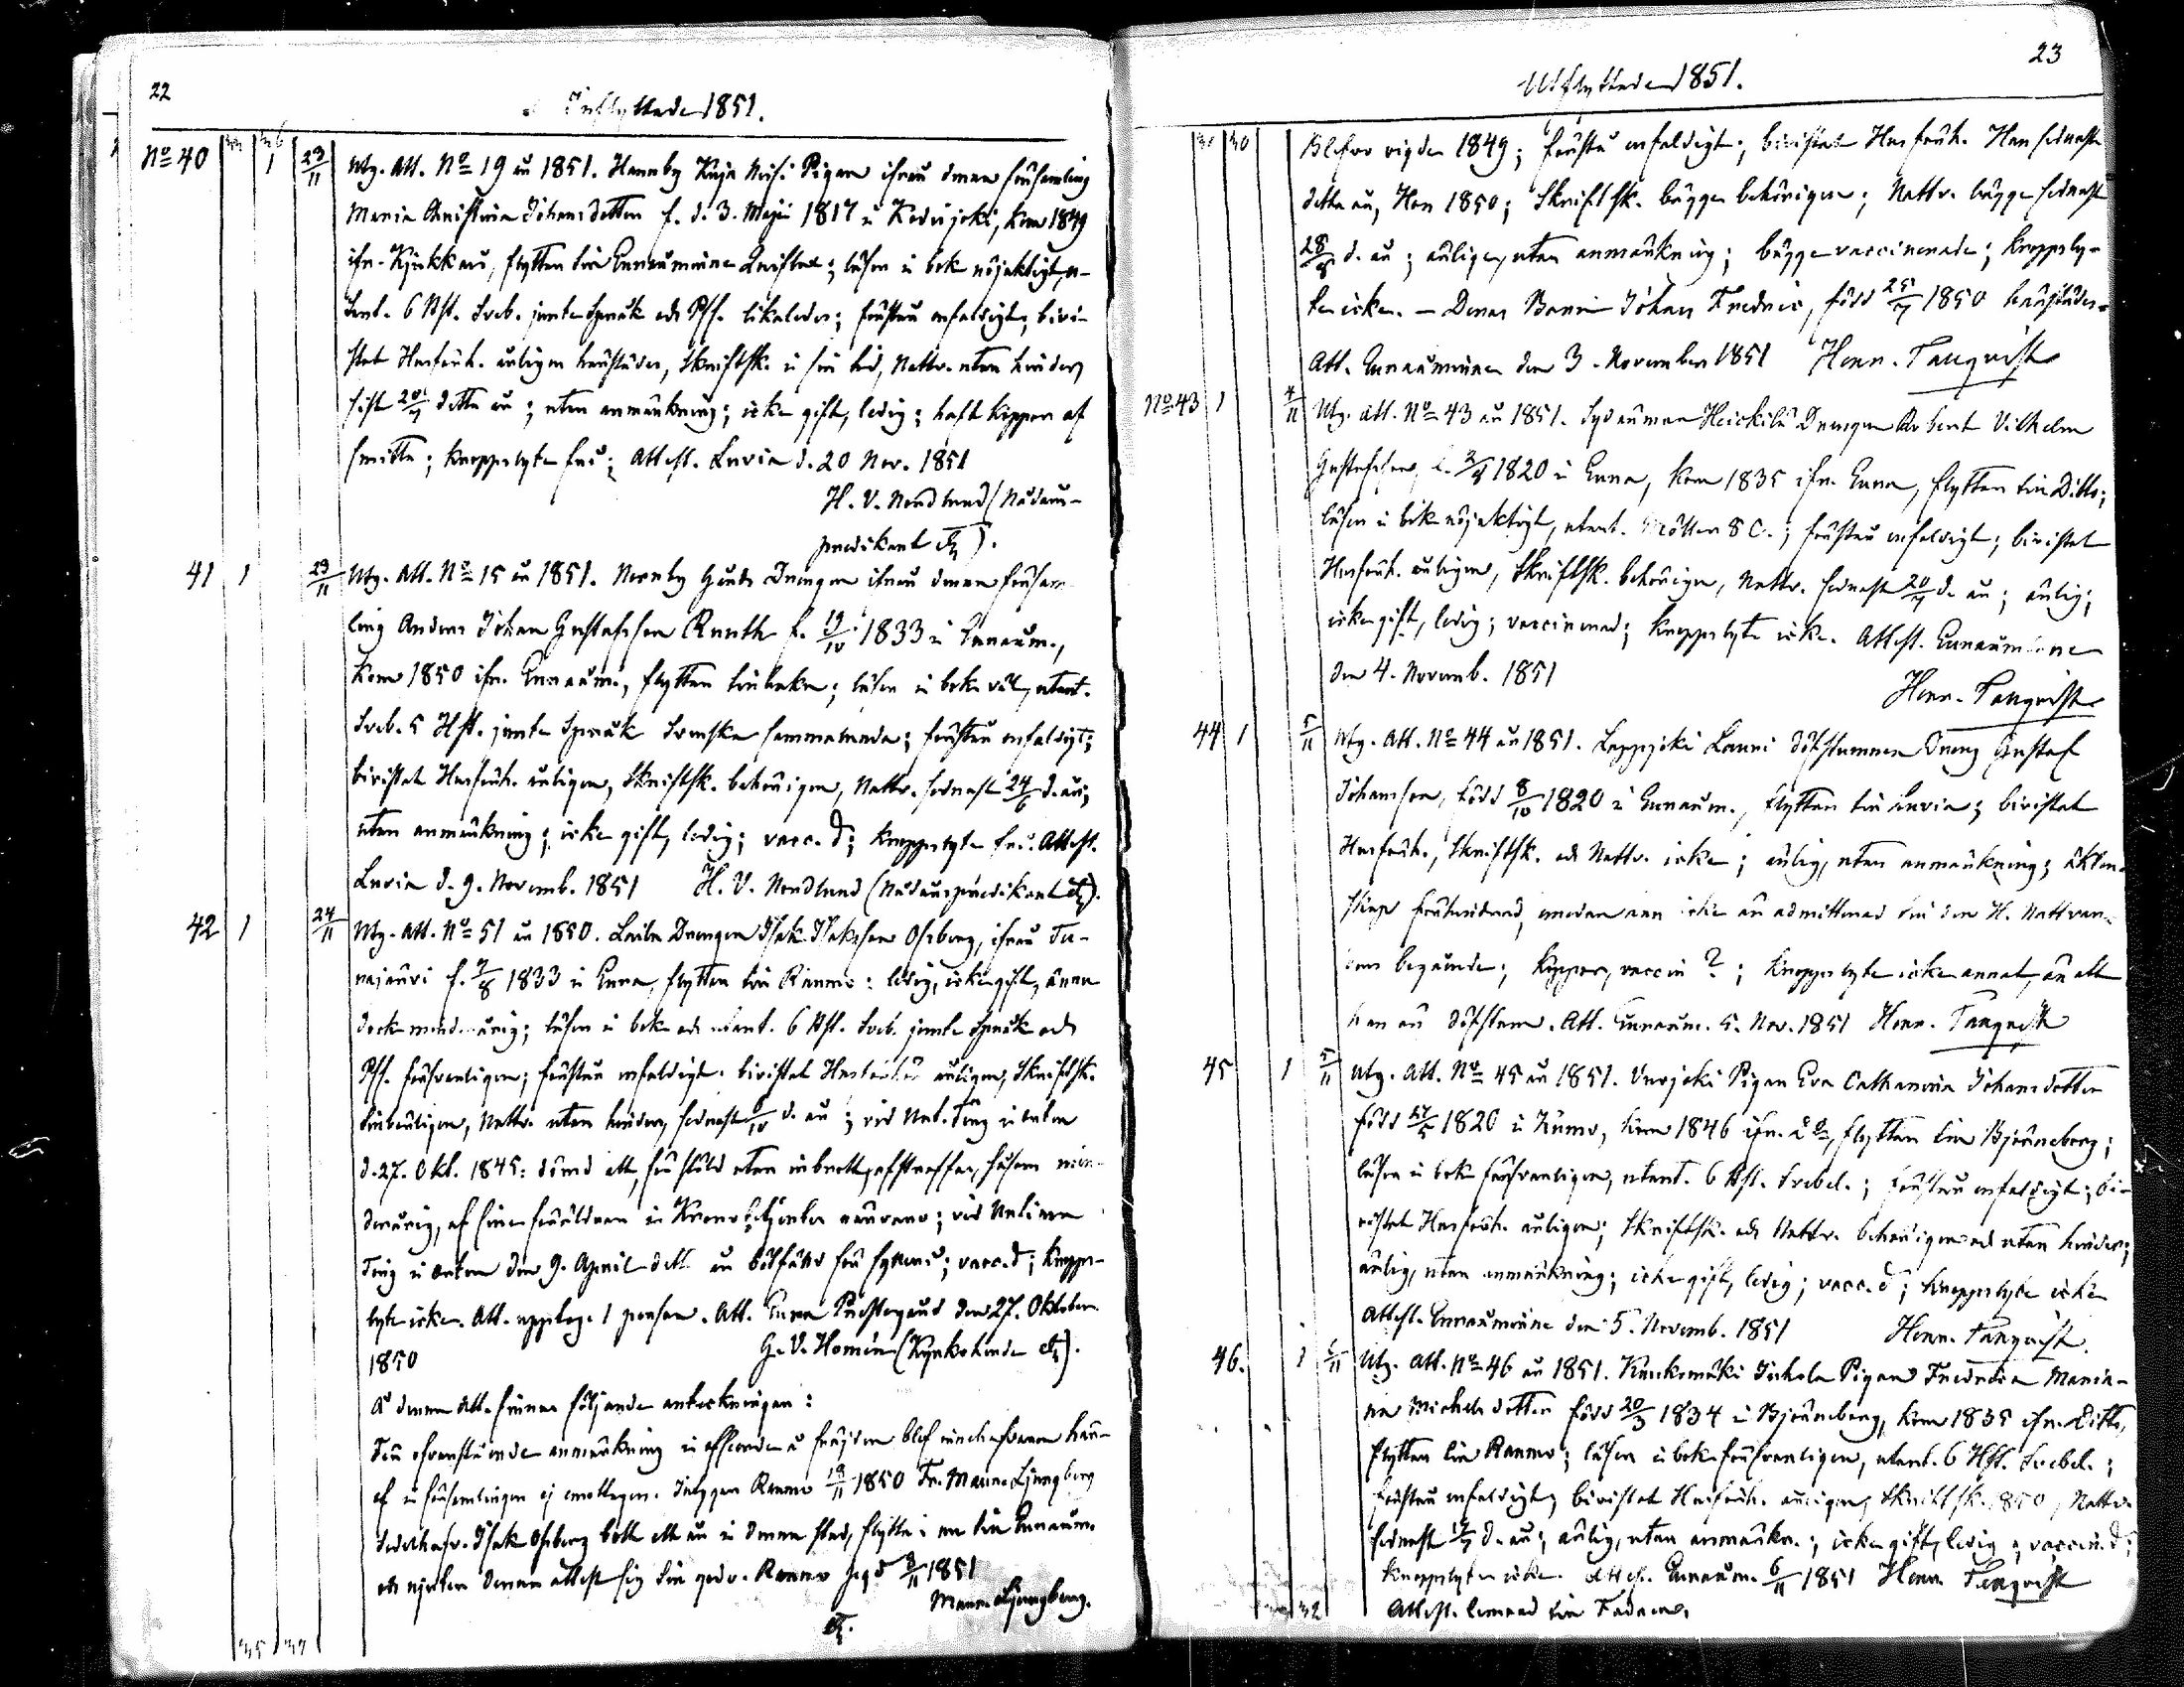 22
Inflyttade 1851.
No 40 1 23/11 Utg. Att. No 19 år 1851. Hannby Kuja Nisi Pigan ifrån denna församling
Maria Christina Johansdotter f. d. 3. Maji 1817 i Kodisjoki, kom 1849
ifr. Kjukkais, flyttar till Euraåminne ; läser i bok nöjaktigt, u-
tant. 6 Hst. Sveb. jemte Språk och Pss. likaledes; förstår enfaldigt; bivi-
stat Husförh. årligen härstädes, Skriftsk. i sin tid, Nattv. utan hinder,
sist detta år; utan anmärkning; icke gift, ledig; haft koppor af
smitta; kroppslyte fri; Attest. Luvia d. 20 Nov. 1851
H. V. Nordlund (Nådaårs-
predikant etc).
41 1 23/11 Utg. Att. No 15 år 1851. Norrby Drengen ifrån denna försam-
ling Anders Johan Gustafsson Ruuth f. 19/10 1833 i Euraåm.,
kom 1850 ifr. Euraåm., flyttar tillbaka; läser i bok väl, utant.
Sveb. 5 Hst. jemte Språk Svenska sammaledes; förstår enfaldigt;
bivistat Husförh. årligen, Skriftsk. behörigen, Nattv. sednast 24/6 d. år;
utan anmärkning; icke gift, ledig; vacc.d; kroppslyte fri. Attest.
Luvia d. 9. Novemb. 1851 H. V. Nordlund (Nådaårspredikant etc).
42 1 24/11 Utg. Att. No 51 år 1850. Drengen Isak Isaksson Osberg, ifrån Tu-
rajärvi f. 9/8 1833 i Eura, flyttar till Raumo: ledig, icke gift, ännu
dock minderårig; läser i bok och utant. 6 Hst. Sveb. jemte Språk och
Pss. försvarligen; förstår enfaldigt. bivistat Husförhör årligen, Skriftsk.
tillbörligen, Nattv. utan hinder, sednast d. år; vid Urt. Ting i
d. 27. Okt. 1845: dömd att, för stöld utan inbrott, afstraffas, såsom min-
derårig, af sine föräldrar i Kronobetjentes närvaro; vid Urtima
Ting i den 9. April dett. år bötfälld för fylleri; vacc.d; kropps-
lyte icke. Att. upptog. 1 person. Att. Eura Prestegård den 27. Oktober
1850 G. V. Homén (Kyrkoherde etc).
Å denna Att. finnas följande anteckningar:
För ofvanstående anmärkning i afseende å frejden blef innehafvaren här-
af i församlingen ej emottagen. Intygar Raumo 19/11 1850 Fr. Maur. Ljungberg
Isak Osberg bott ett år i denna stad, flyttar nu till Euraåm.
och njuter denna attest sig till godo. Raumo 8/11 1851
Maur. Ljungberg.
etc.
35 37
23
Utflyttade 1851.
Blefvo vigde 1849; förstå enfaldigt; bivistat Husförh. Han sednast
detta år, Hon 1850; Skriftsk. bägge behörigen; Nattv. bägge sednast
d. år; ärlige, utan anmärkning; bägge vaccinerade; kroppsly-
te icke. — Deras Barn Johan Fredric, född 25/7 1850 härstädes.
Att. Euraåminne den 3. November 1851 Henr. Tanqvist
No 43 1 4/11 Utg. Att. No 43 år 1851. Sydänmaa Heickilä Drengen Robert Vilhelm
Gustafsson, f. 1820 i Eura, kom 1835 ifr. Eura, flyttar till Ditto;
läser i bok nöjaktigt, utant. Möller 8 C.; förstår enfaldigt; bivistat
Husförh. årligen, Skriftsk. behörigen, Nattv. sednast d. år; ärlig;
icke gift, ledig; vaccinerad; kroppslyte icke. Attest. Euraåminne
den 4. Novemb. 1851
Henr. Tanqvist
44 1 5/11 Utg. Att. No 44 år 1851. Lappijoki Lauri döfstumma Dreng Gustaf
Johansson, född 8/10 1820 i Euraåm., flyttar till Luvia; bivistat
Husförh., Skriftsk. och Nattv. icke; ärlig, utan anmärkning; äkten-
skap förhindrad, emedan han icke är admitterad till den H. Nattvar-
dens begående; koppor, vaccin ?; kroppslyte icke annat, än att
han är döfstum. Att. Euraåm. 5. Nov. 1851 Henr. Tanqvist
45 1 5/11 Utg. Att. No 45 år 1851. Vuojoki Pigan Eva Catharina Johansdotter
född 1820 i Kiumo, kom 1846 ifr. do, flyttar till Björneborg;
läser i bok försvarligen, utant. 6 Hst. Svebel.; förstår enfaldigt; bi-
vistat Husförh. årligen; Skriftsk. och Nattv. behörigen och utan hinder;
ärlig, utan anmärkning; icke gift, ledig; vacc.d; kroppslyte icke
Attest. Euraåminne den 5. Novemb. 1851 Henr. Tanqvist.
46. 1 6/11 Utg. Att. No 46 år 1851. Kaukomäki Pigan Fredrica Maria-
na Michelsdotter född 20/3 1834 i Björneborg, kom 1835 ifr. Ditto,
flyttar till Raumo; läser i bok försvarligen, utant. 6 Hst. Svebel.;
förstår enfaldigt; bivistat Husförh. årligen, Skriftsk. 1850, Nattv.
sednast d. år; ärlig, utan anmärkn.; icke gift, ledig; vaccin.d;
kroppslyte icke. Attest. Euraåm. 6/11 1851 Henr. Tanqvist
Attest. lemnad till Fadren.
32